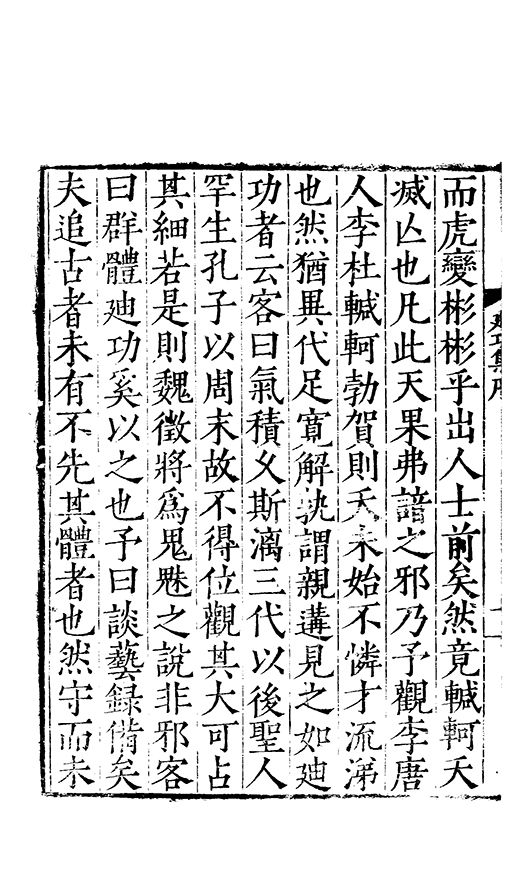 而虎變彬彬乎出人士前矣然竟轗軻夭
滅亾也凡此天果弗諳之邪乃予觀李唐
人李杜轗軻勃賀則夭未始不憐才流涕
也然猶異代足寛解孰謂親遘見之如廸
功者云客曰氣積乆斯漓三代以後聖人
罕生孔子以周末故不得位觀其大可占
其細若是則魏徵將爲鬼魅之說非邪客
曰群體廸功奚以之也予曰談藝録備矣
夫追古者未有不先其體者也然守而未
廸功集序